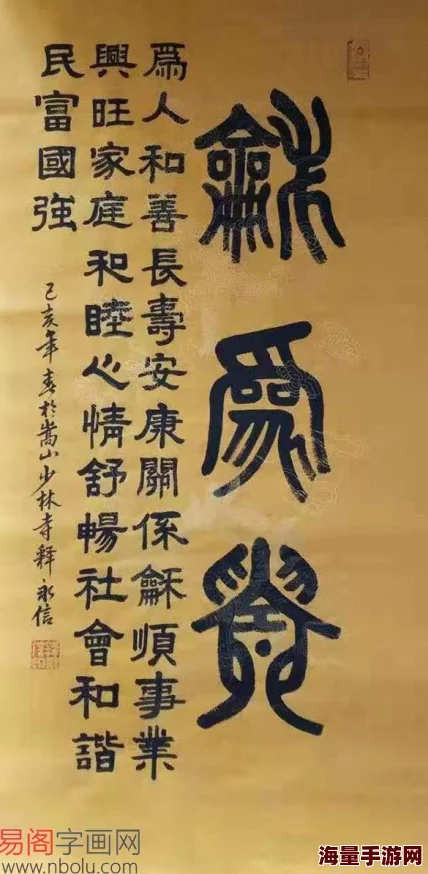 龢爲貴
爲人和善長壽安康關係龢順事業
興旺家庭和睦心情舒暢社會和諧
民富國強
己亥年春於嵩山少林寺釋永信
易阁字画网
www.nbolu.com
海量手游网